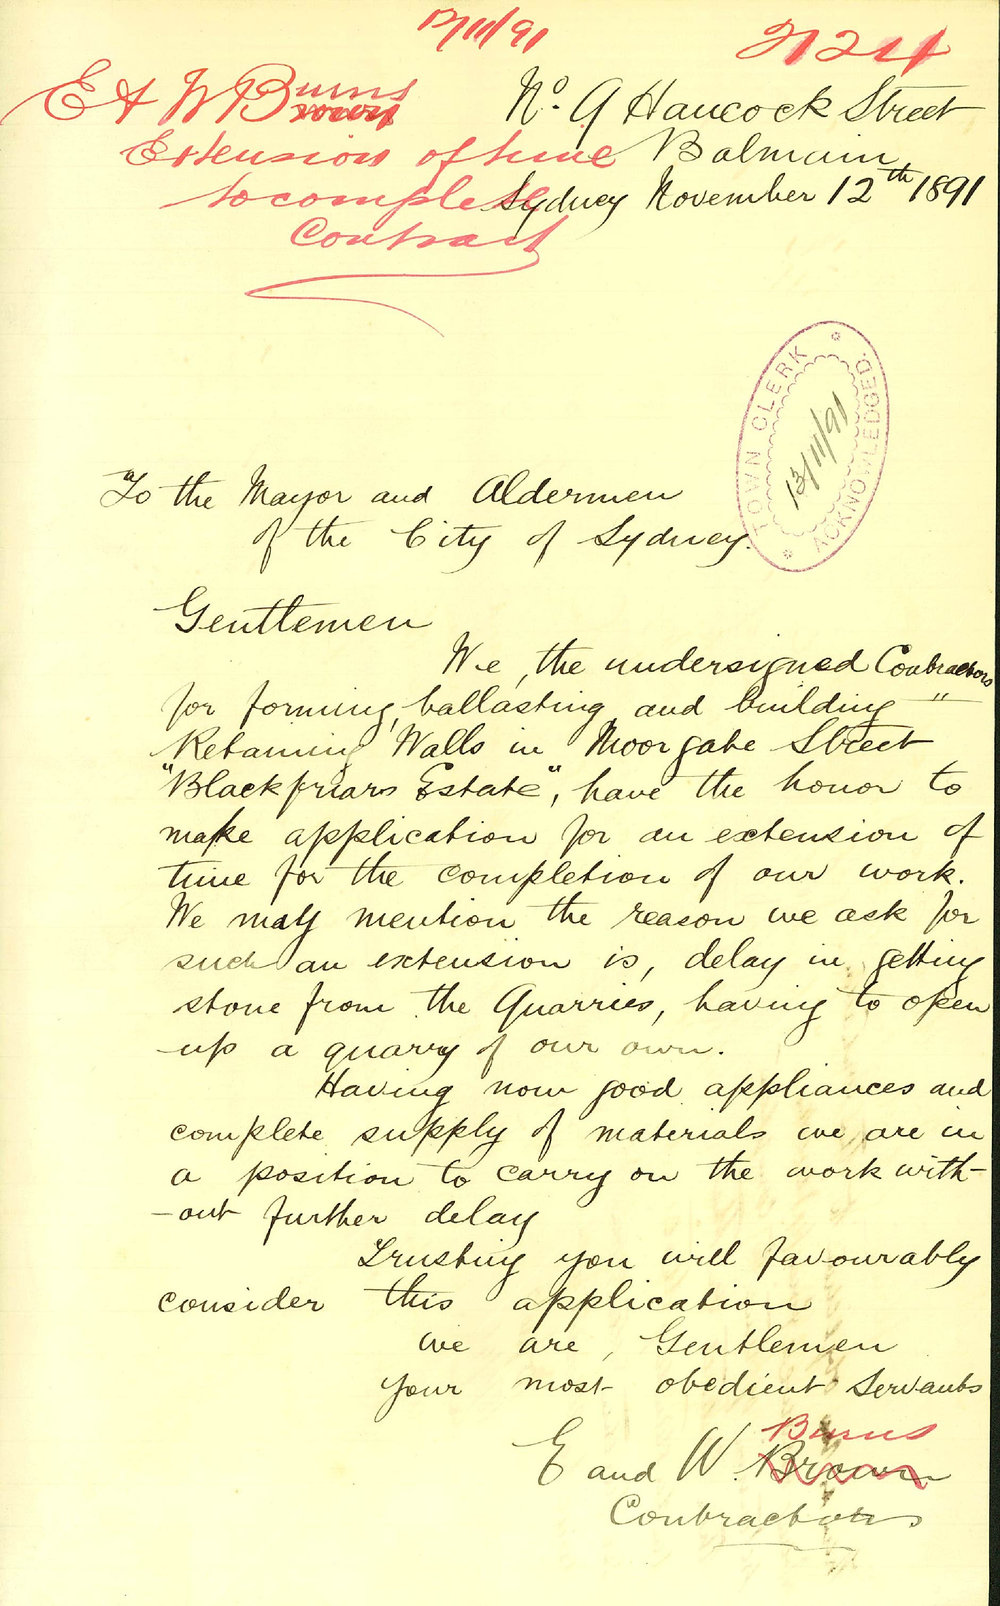 12/11/91
2124
E & W Burns
Brown
Extension of time
to complete
Contract
No. 9 Hancock Street
Balmain
Sydney November 12th 1891
TOWN CLERK
13/11/91
ACKNOWLEDGED.
To the Mayor and Aldermen
of the City of Sydney.
Gentlemen
We, the undersigned Contractors
for forming, ballasting and building "
Retaining Walls in Moorgate Street
"Blackfriars Estate", have the honor to
make application for an extension of
time for the completion of our work.
We may mention the reason we ask for
such an extension is, delay in getting
stone from the Quarries, having to open
-up a quarry of our own.
Having now good appliances and
complete supply of materials we are in
a position to carry on the work with-
-out further delay
Trusting you will favourably
consider this application
we are, Gentlemen
your most obedient Servants
Burns
E and W. Brown
Contractors